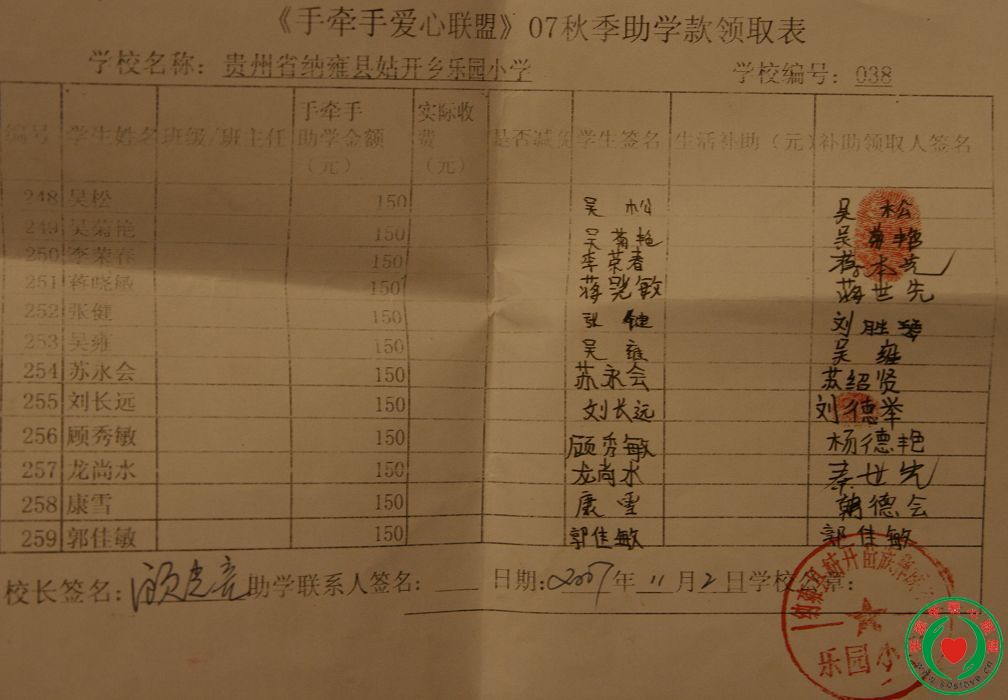 《手牵手爱心联盟》07秋季助学款领取表
学校名称：贵州省纳雍县姑开乡乐园小学 学校编号：038
编号 学生姓名 班级/班主任 手牵手助学金额（元） 实际收费（元） 是否减免 学生签名 生活补助（元） 补助领取人签名
248 吴松 150 吴松 吴松
249 吴菊艳 150 吴菊艳 吴菊艳
250 李荣春 150 李荣春
251 蒋晓敏 150 蒋晓敏 蒋世先
252 张健 150 张健 刘胜
253 吴雍 150 吴雍 吴雍
254 苏永会 150 苏永会 苏绍贤
255 刘长远 150 刘长远 刘德举
256 顾秀敏 150 顾秀敏 杨德艳
257 龙尚水 150 龙尚水 秦世先
258 康雪 150 康雪 德会
259 郭佳敏 150 郭佳敏 郭佳敏
校长签名： 助学联系人签名： 日期：2007年11月2日 学校公章：
乐园小